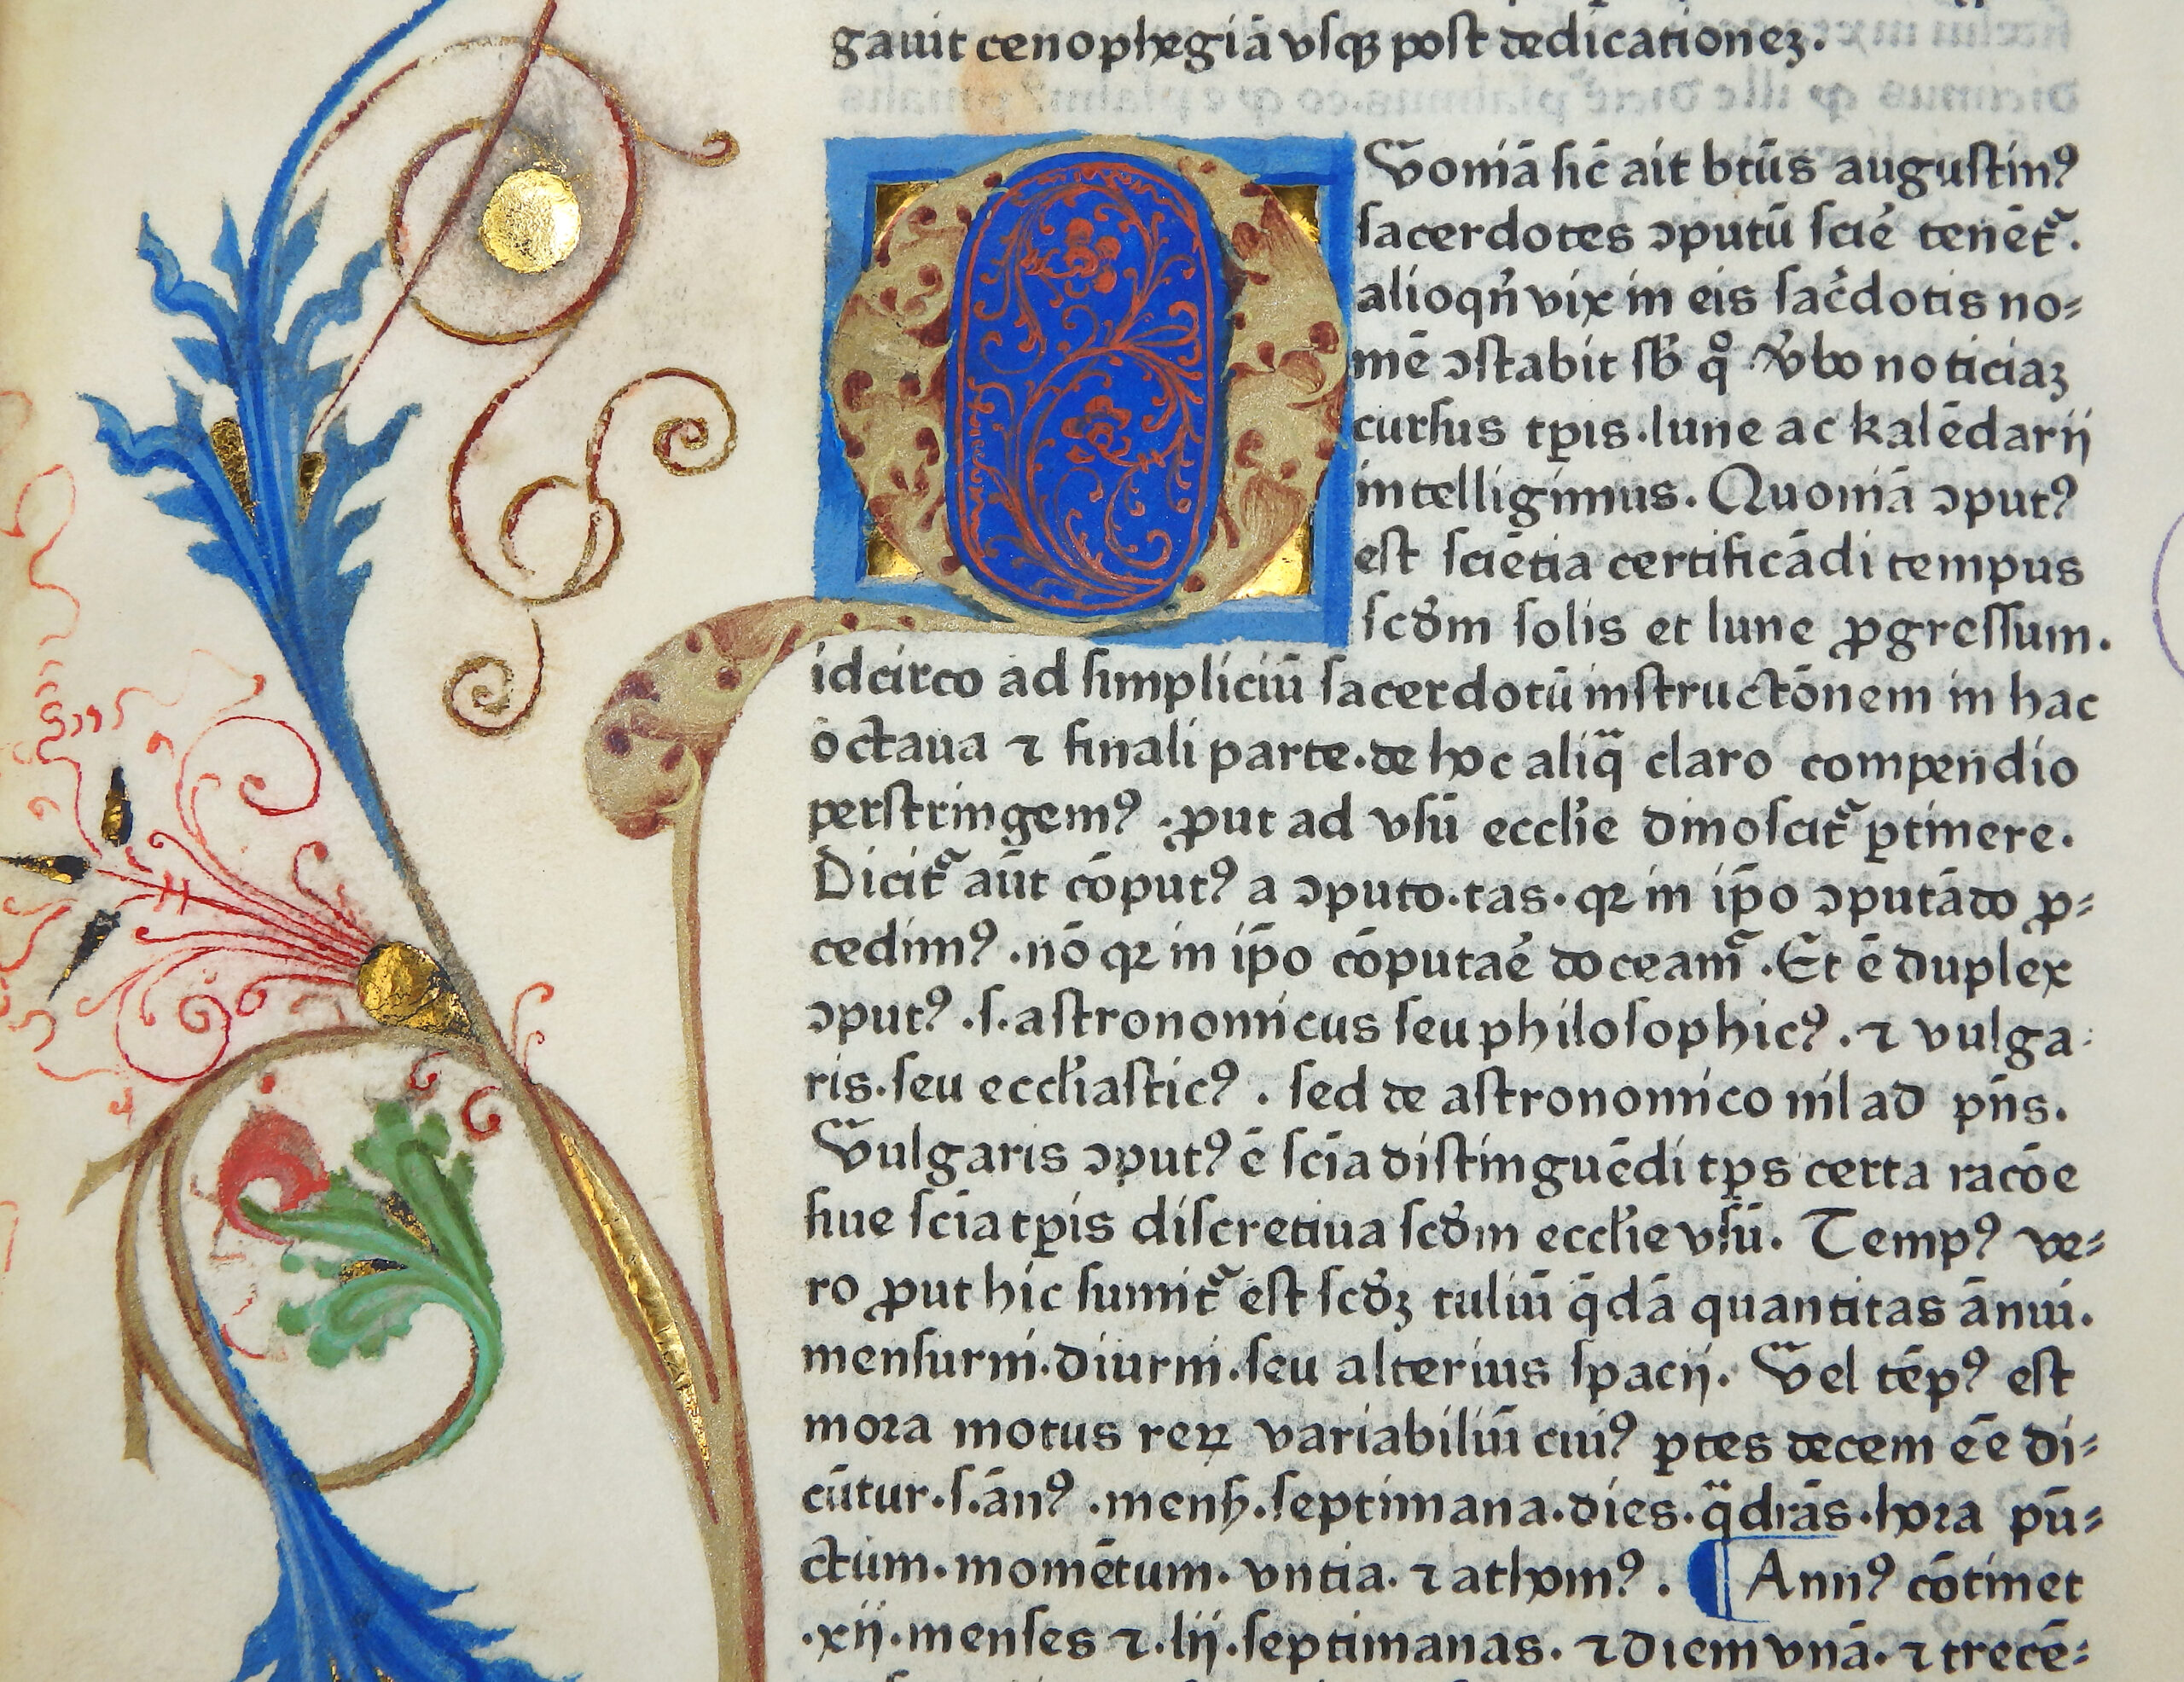 gauit cenophegiā vſqꝫ poſt dedicationeꝫ.
Qv̄oniā ſic̄ ait btūs auguſtinꝰ
ſacerdotes ↄputū ſcīe tenēt᷑.
alioqn̄ vix in eis ſac̄dotis no⸗
mē ↄſtabit ſb̄ qͦ v̄bo noticiaꝫ
curſus tp̄is·lune ac kalēdarij
intelligimus. Quoniā ↄputꝰ
eſt ſciētia certificādi tempus
ſcdm̄ ſolis et lune ꝓgreſſum.
idcirco ad ſimpliciū ſacerdotū inſtructōnem in hac
octaua ⁊ finali parte·de hoc aliqͣ claro compendio
perſtringemꝰ ·ꝓut ad vſū eccl̄ie dinoſcit᷑ ꝑtinere.
Dicit᷑ aūt cōputꝰ a ↄputo·tas·qꝛ in ip̄o ↄputādo ꝓ⸗
cedimꝰ ·nō qꝛ in ip̄o cōputāe doceam᷑ ·Et ē duplex
ↄputꝰ ·ſ·aſtronomicus ſeu philoſophicꝰ ·⁊ vulga⸗
ris·ſeu eccl̄iaſticꝰ . ſed de aſtronomico nil ad pn̄s.
Vulgaris ↄputꝰ ē ſcīa diſtinguēdi tp̄s certa racōe
ſiue ſcīa tp̄is diſcretiua ſcdm̄ eccl̄ie vſū. Tempꝰ ve⸗
ro ꝓut hic ſumit᷑ eſt ſcd̄ꝫ tuliū q̄dā quantitas ānui.
menſurni·diurni·ſeu alterius ſpacij. Vel tēpꝰ eſt
mora motus reꝝ variabiliū cuiꝰ ꝑtes decem eē di⸗
cūtur·ſ·ānꝰ ·menſ̄·ſeptimana·dies·qͣdrās·hora pū⸗
ctum·momētum·vntia·⁊ athomꝰ . ¶ Annꝰ cōtinet
·xij·menſes ⁊·lij·ſeptimanas·⁊ diem vnā·⁊ trecē⸗